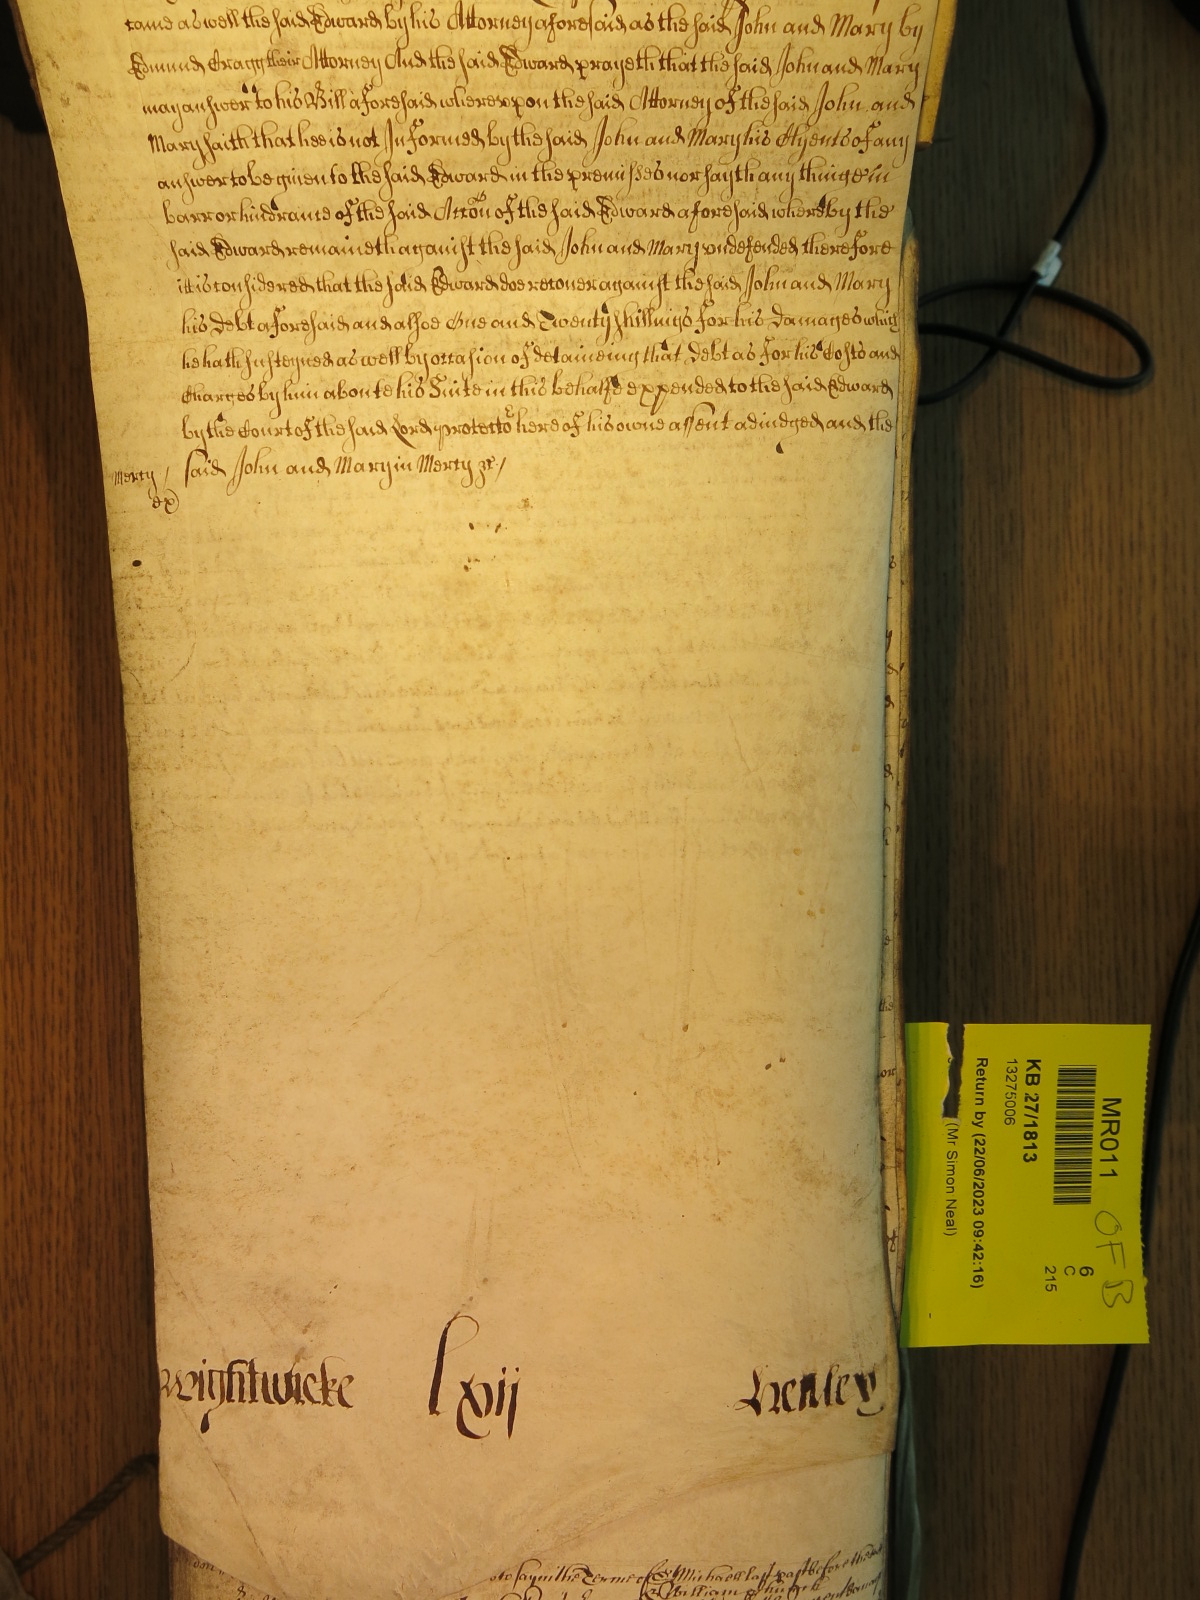 came as well the said Edward by his Attorney aforesaid as the said John and Mary by
Edmund Cragg their Attorney And the said Edward prayeth that the said John and Mary
may answer to his Bill aforesaid whereupon the said Attorney of the said John and
Mary saith that hee is not Informed by the said John and Mary his Clyents of any
answer to be given to the said Edward in the premisses nor sayth any thinge in
barr or hindrance of the said Accon of the said Edward aforesaid whereby the
said Edward remaineth against the said John and Mary undefended therefore
it is considered that the said Edward doe recover against the said John and Mary
his debt aforesaid and alsoe One and Twenty shillings for his damages which
he hath susteyned as well by occasion of detaineing that debt as for his Costs and
Charges by him about his Suite in this behalfe expended to the said Edward
by the Court of the said Lord protector here of his owne assent adiudged and the
said John and Mary in Mercy &c /
Mercy /
Wightwicke lxvii Henley
to say in the Terme of St Michaell last past before the
William
MR011
OFB
KB 27/1813
13275006
Return by (22/06/2023 09:42:16)
(Mr Simon Neal)
6
C
215